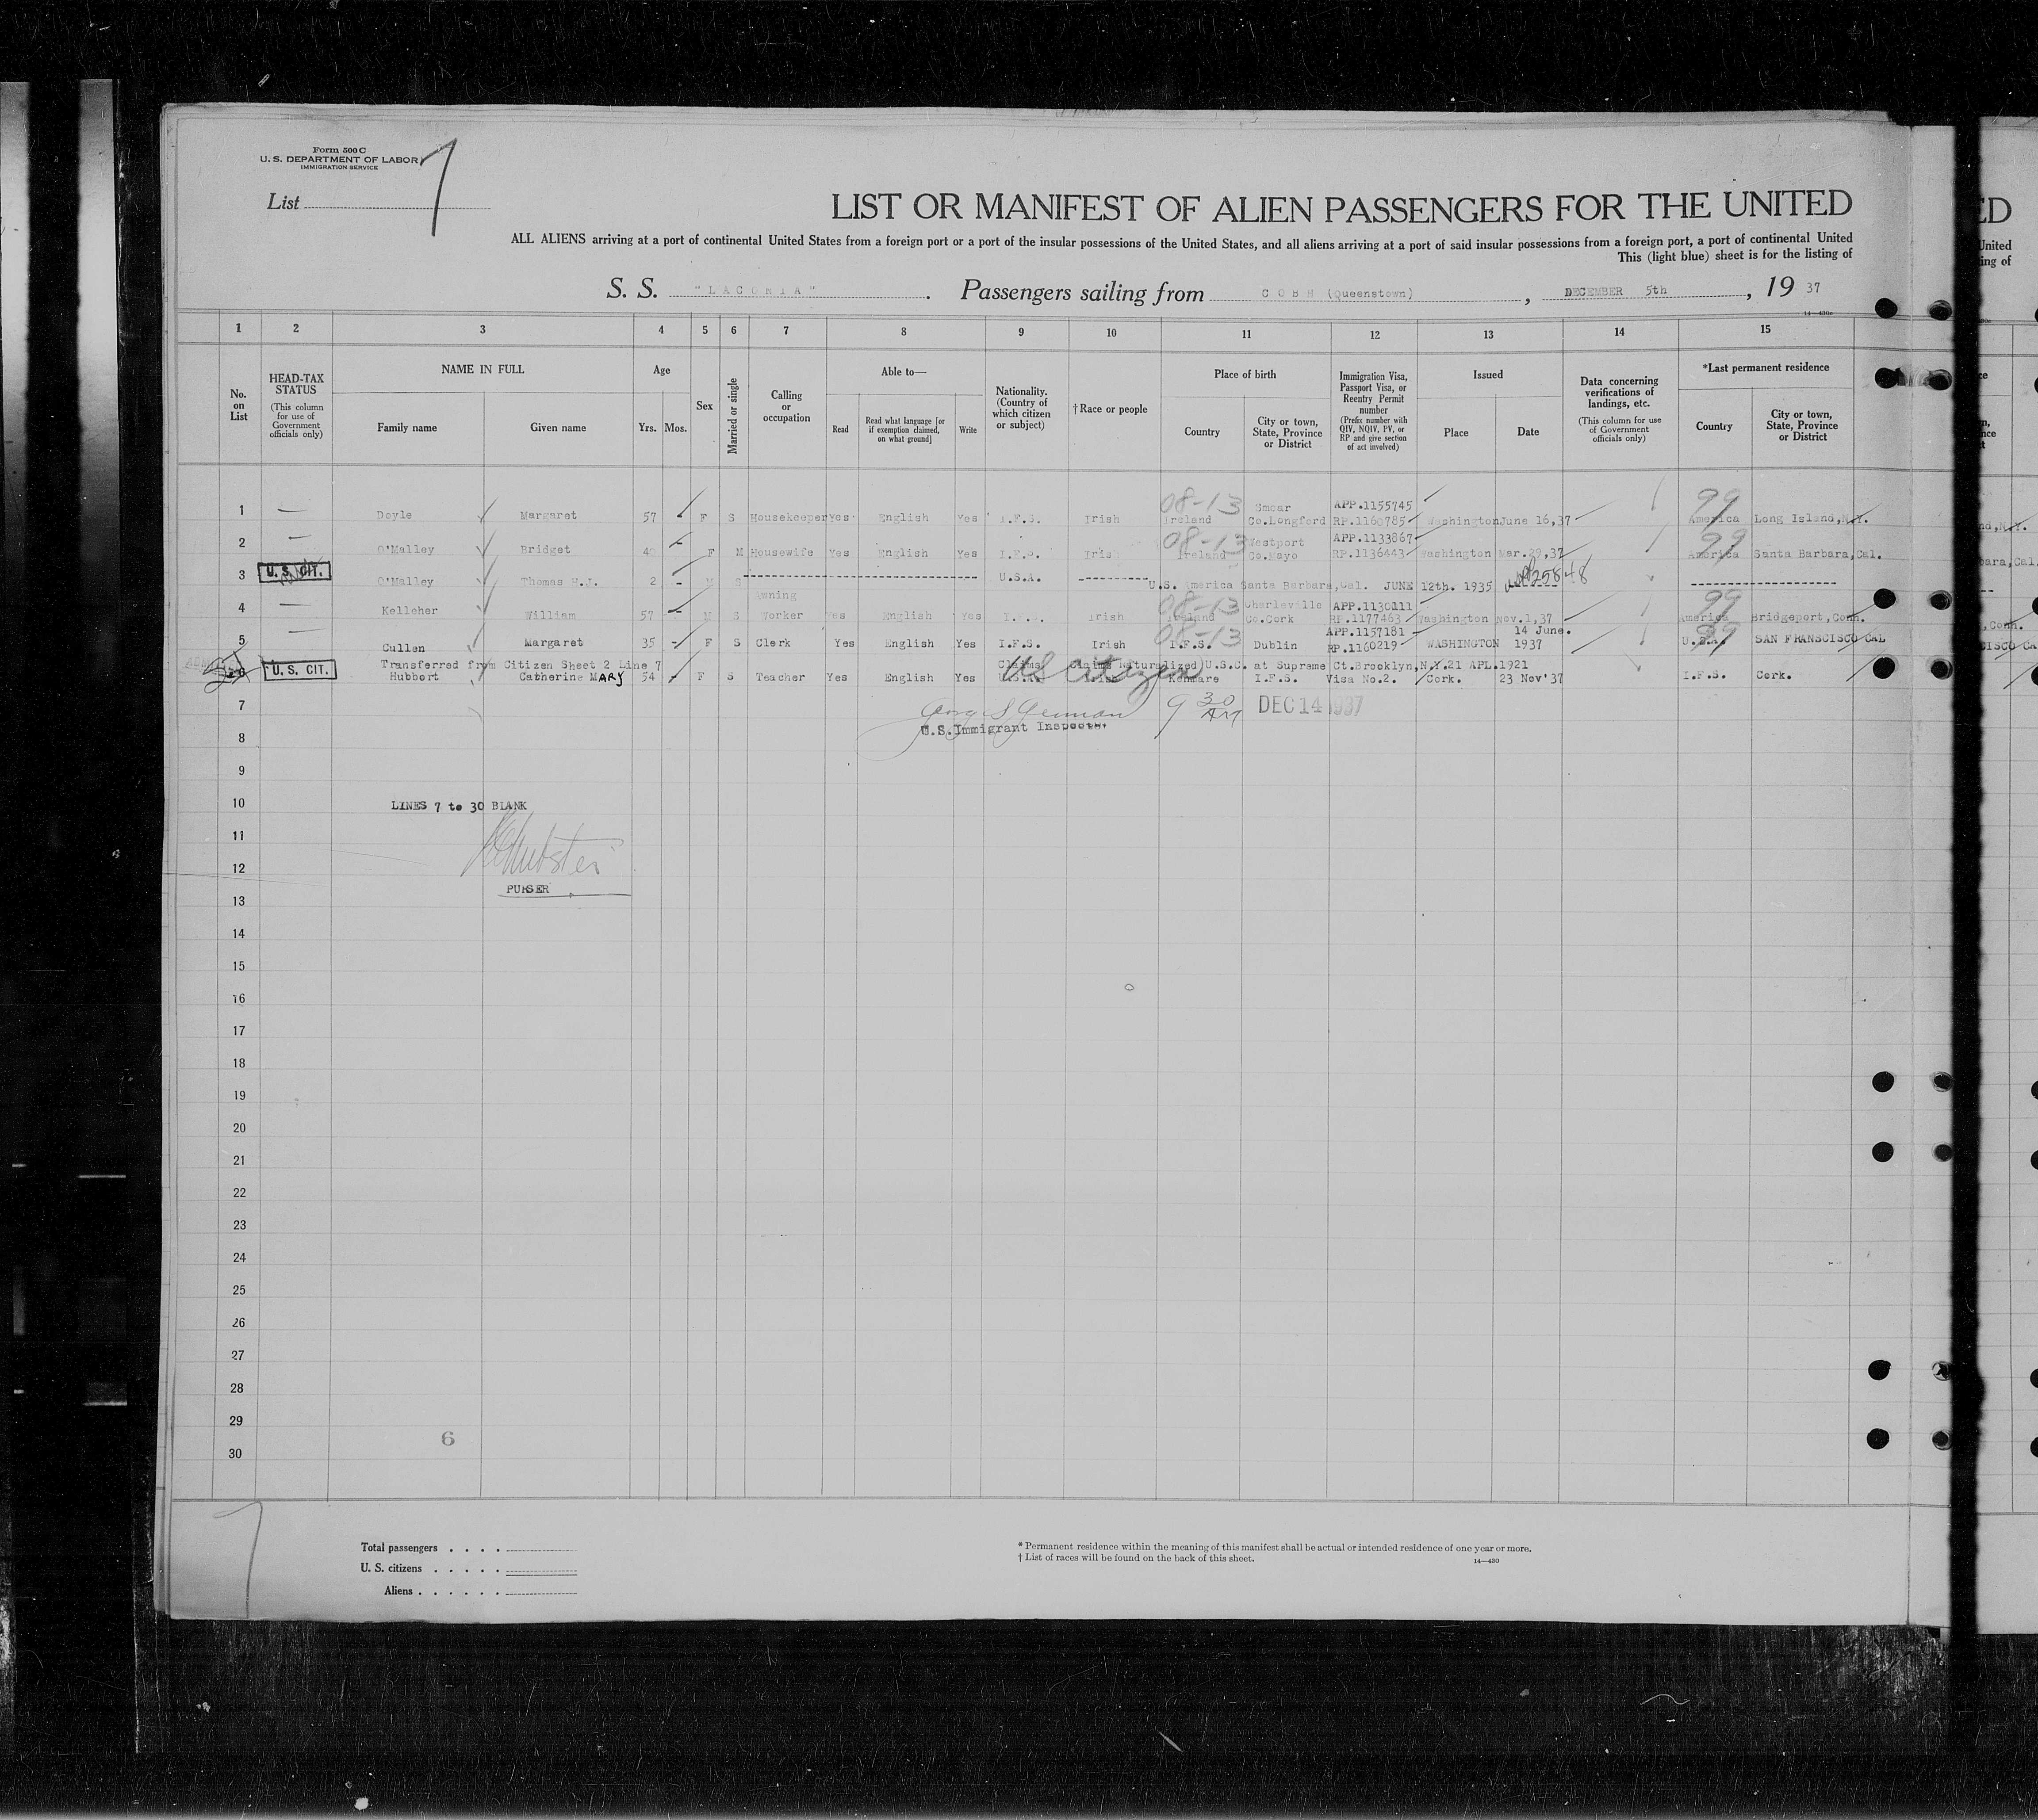 Form 500 C
U. S. DEPARTMENT OF LABOR
IMMIGRATION SERVICE
List 7
LIST OR MANIFEST OF ALIEN PASSENGERS FOR THE UNITED
ALL ALIENS arriving at a port of continental United States from a foreign port or a port of the insular possessions of the United States, and all aliens arriving at a port of said insular possessions from a foreign port, a port of continental United
This (light blue) sheet is for the listing of
S. S. "LACONIA". Passengers sailing from COBH (Queenstown), DECEMBER 5th, 19 37
14—430c
1 2 3 4 5 6 7 8 9 10 11 12 13 14 15
No. on List
HEAD-TAX STATUS (This column for use of Government officials only)
NAME IN FULL
Family name Given name
Age
Yrs. Mos.
Sex
Married or single
Calling or occupation
Able to—
Read Read what language [or if exemption claimed, on what ground] Write
Nationality. (Country of which citizen or subject)
†Race or people
Place of birth
Country City or town, State, Province or District
Immigration Visa, Passport Visa, or Reentry Permit number (Prefix number with QIV, NQIV, PV, or RP and give section of act involved)
Issued
Place Date
Data concerning verifications of landings, etc. (This column for use of Government officials only)
*Last permanent residence
Country City or town, State, Province or District
08-13 Smear APP.1155745 99
1 — Doyle Margaret 57 - F S Housekeeper Yes English Yes I.F.S. Irish Ireland Co.Longford RP.1160785 Washington June 16,37 America Long Island,N.Y.
08-13 Westport APP.1133867 99
2 — O'Malley Bridget F M Housewife Yes English Yes I.F.S. Irish Ireland Co.Mayo RP.1136443 Washington Mar.29,37 America Santa Barbara,Cal.
3 U. S. CIT. O'Malley Thomas H.J. 2 - M S U.S.A. U.S. America Santa Barbara,Cal. JUNE 12th. 1935
Awning 08-13 Charleville APP.1130111 99
4 — Kelleher William 57 - M S Worker Yes English Yes I.F.S. Irish Ireland Co.Cork RP.1177463 Washington Nov.1,37 America Bridgeport,Conn.
08-13 APP.1157181 14 June. 99
5 — Cullen Margaret 35 - F S Clerk Yes English Yes I.F.S. Irish I.F.S. Dublin RP.1160219 WASHINGTON 1937 U.S.A. SAN FRANSCISCO CAL
Transferred from Citizen Sheet 2 Line 7 Claims Naturalized U.S.C. at Supreme Ct.Brooklyn,N.Y.21 APL.1921
US Citizen
6 U. S. CIT. Hubbert Catherine MARY 54 F S Teacher Yes English Yes U.S.A. Irish Kenmare I.F.S. Visa No.2. Cork. 23 Nov'37 I.F.S. Cork.
7
9 30 AM DEC 14 1937
U.S.Immigrant Inspector.
8
9
10 LINES 7 to 30 BLANK
11
12
PURSER
13
14
15
16
17
18
19
20
21
22
23
24
25
26
27
28
29
6
30
7
Total passengers . . . .
U. S. citizens . . . . .
Aliens . . . . . .
* Permanent residence within the meaning of this manifest shall be actual or intended residence of one year or more.
† List of races will be found on the back of this sheet.
14—430